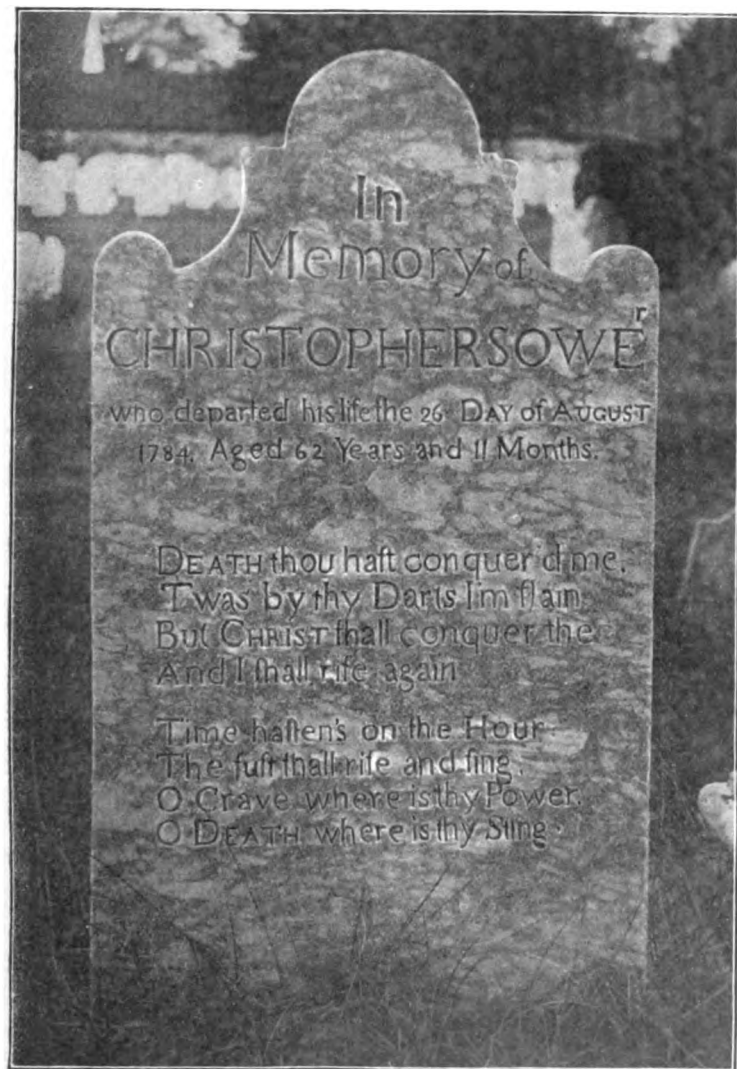 In
Memory of
CHRISTOPHER SOWEʳ
who departed his life the 26 DAY of AUGUST
1784. Aged 62 Years and 11 Months.
DEATH thou haſt conquer'd me,
'Twas by thy Darts I'm ſlain
But CHRIST ſhall conquer the
And I ſhall riſe again
Time haſten's on the Hour
The juſt ſhall riſe and ſing,
O Grave where is thy Power.
O DEATH where is thy Sting.